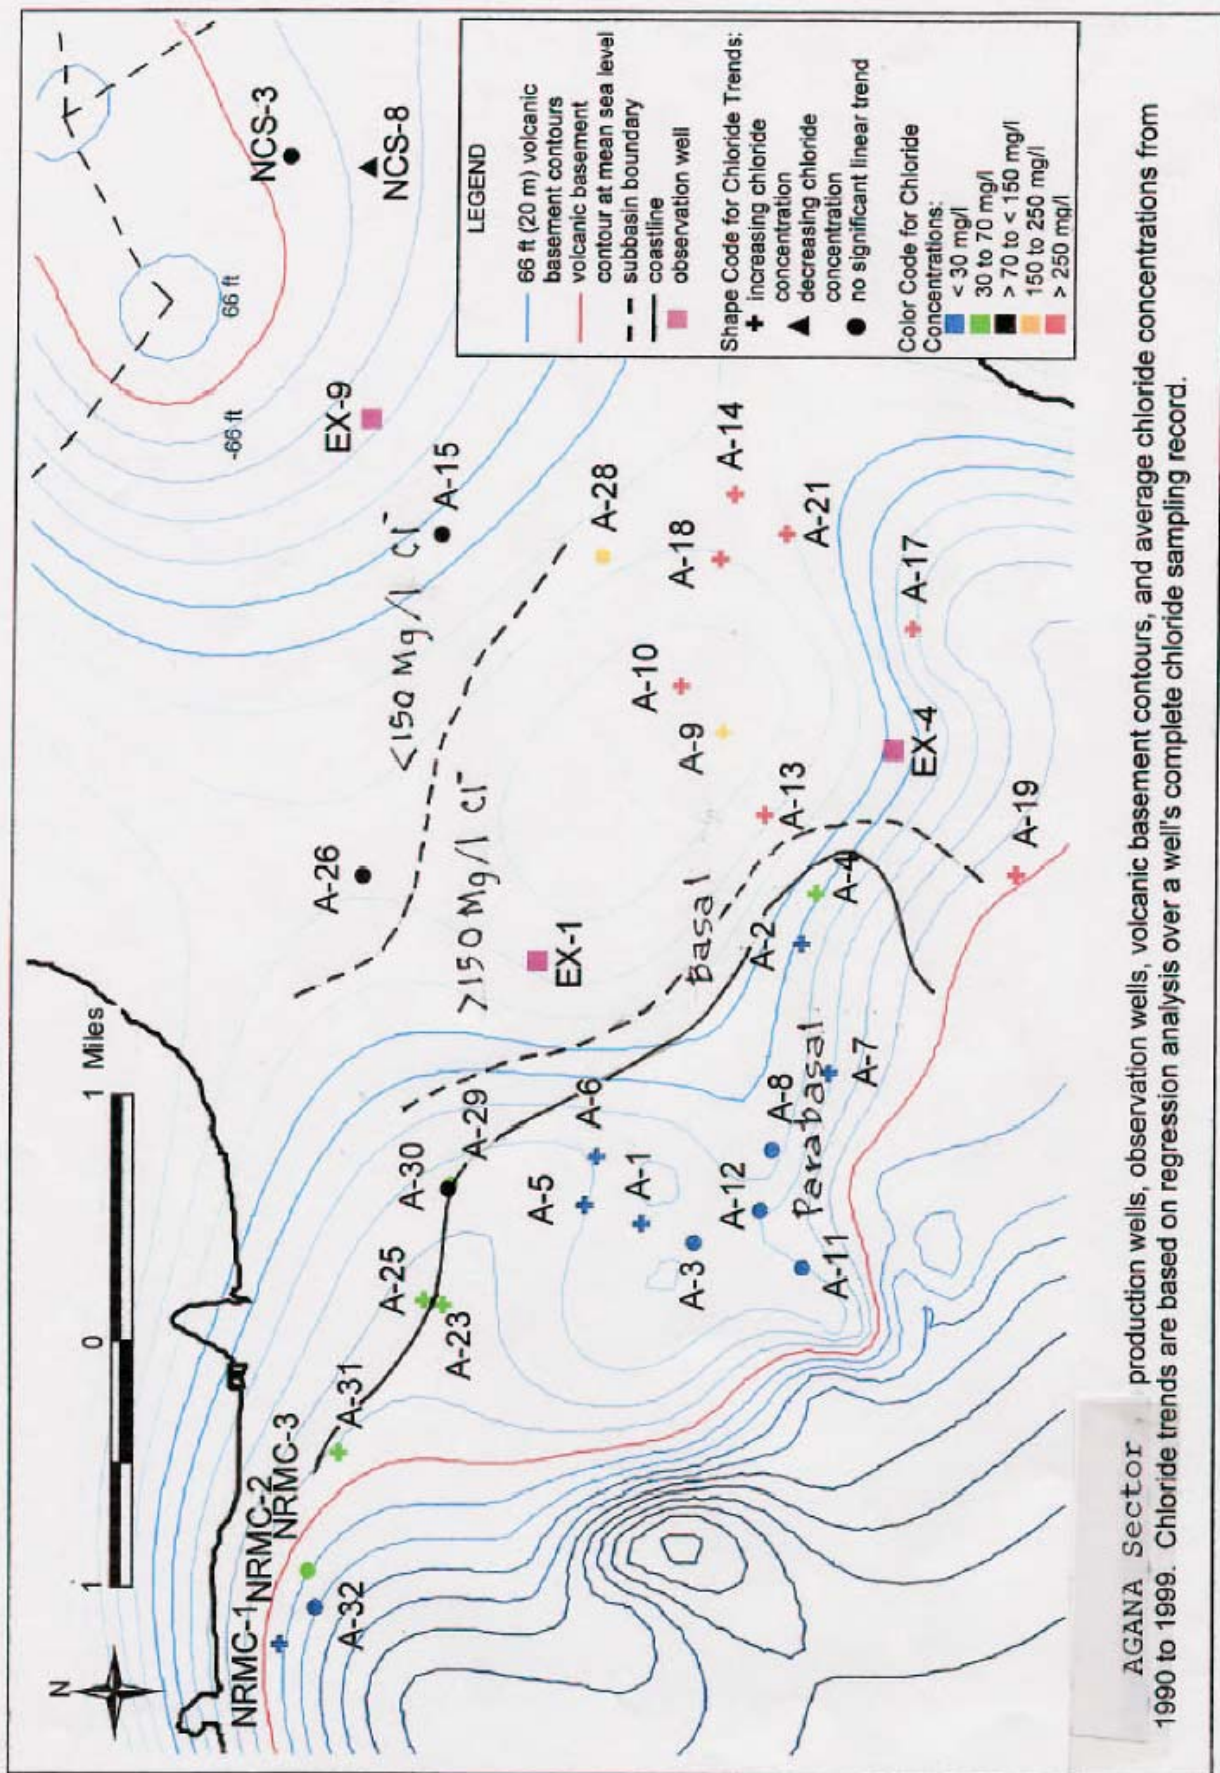 N
1
0
1 Miles
NRMC-1
NRMC-2
NRMC-3
A-32
A-31
A-25
A-23
A-30
A-29
A-26
A-5
A-6
A-1
A-3
A-12
A-8
A-11
A-7
A-2
A-4
A-13
A-9
A-10
A-18
A-28
A-14
A-21
A-17
A-19
A-15
EX-1
EX-4
EX-9
NCS-3
NCS-8
-66 ft
66 ft
<150 Mg/l Cl⁻
>150 Mg/l Cl⁻
basal
Parabasal
LEGEND
66 ft (20 m) volcanic
basement contours
volcanic basement
contour at mean sea level
subbasin boundary
coastline
observation well
Shape Code for Chloride Trends:
increasing chloride
concentration
decreasing chloride
concentration
no significant linear trend
Color Code for Chloride
Concentrations:
< 30 mg/l
30 to 70 mg/l
> 70 to < 150 mg/l
150 to 250 mg/l
> 250 mg/l
AGANA Sector production wells, observation wells, volcanic basement contours, and average chloride concentrations from
1990 to 1999. Chloride trends are based on regression analysis over a well's complete chloride sampling record.